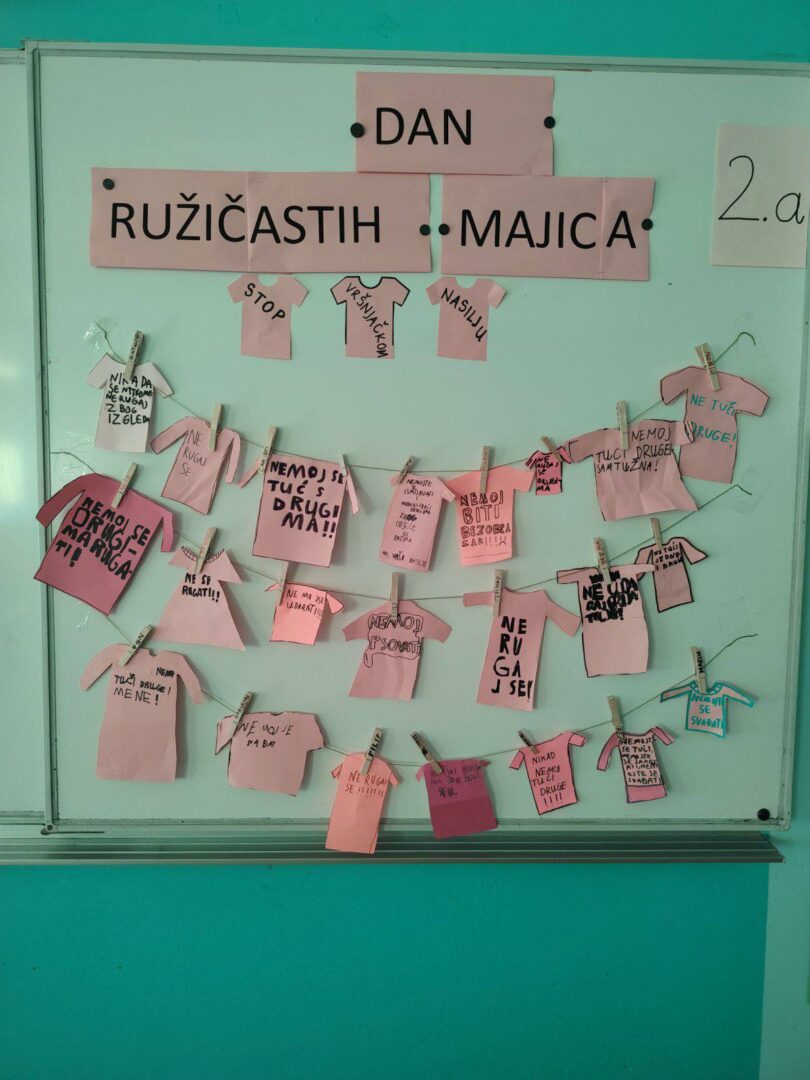 DAN
RUŽIČASTIH MAJICA
2.a
STOP
VRŠNJAČKOM
NASILJU
NIKADA
SE NIKOME
NE RUGAJ
ZBOG
IZGLEDA
NE
RUGAJ
SE
NEMOJ SE
TUĆ S
DRUGI
MA!!
NEMOJTE
NEMOJ
BITI
BEZOBRA
ZAN!!!!
NEMOJ
TUĆI DRUGE
SAM TUŽNA!
NE TUČI
DRUGE!
NEMOJ SE
DRUGI-
MA RUGA-
TI!!
NE SE
RUGATI!!!
NEMOJ SE
UDARATI!!!
NEMOJ
PSOVATI
NE
RU
GA
J SE!
NE TUČI
NEMOJ
TUĆI DRUGE I
MENE!
NEMOJ SE
NE RUGAJ
SE!!!!!
NIKAD
NEMOJ
TUĆI
DRUGE
!!!!
NEMOJTE
SE TUĆI,
NEMOJTE
SE
SVAĐATI